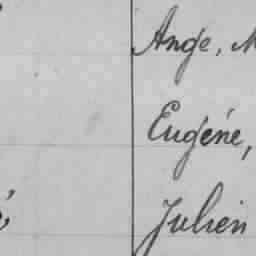 Ange, M
Eugéne,
Julien